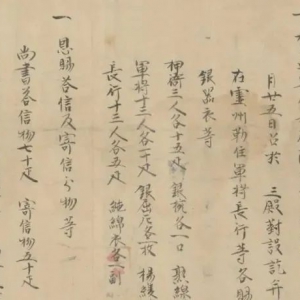 月廿五日召於 三殿對設訖并
在靈州勒住軍將長行等各賜
銀器衣等
押衙三人各十五疋 銀椀各一口 熟線
軍將十三人各一十疋 銀屈卮各一枚 楊綾
長行十三人各五疋 絁綿衣各一副
一 恩賜答信及寄信分物等
尚書答信物七十疋 寄信物五十疋